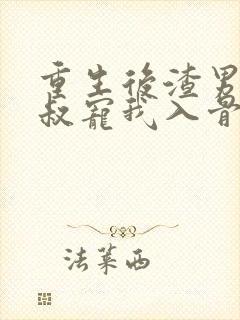 重生後渣男
叔寵我入骨
法萊西